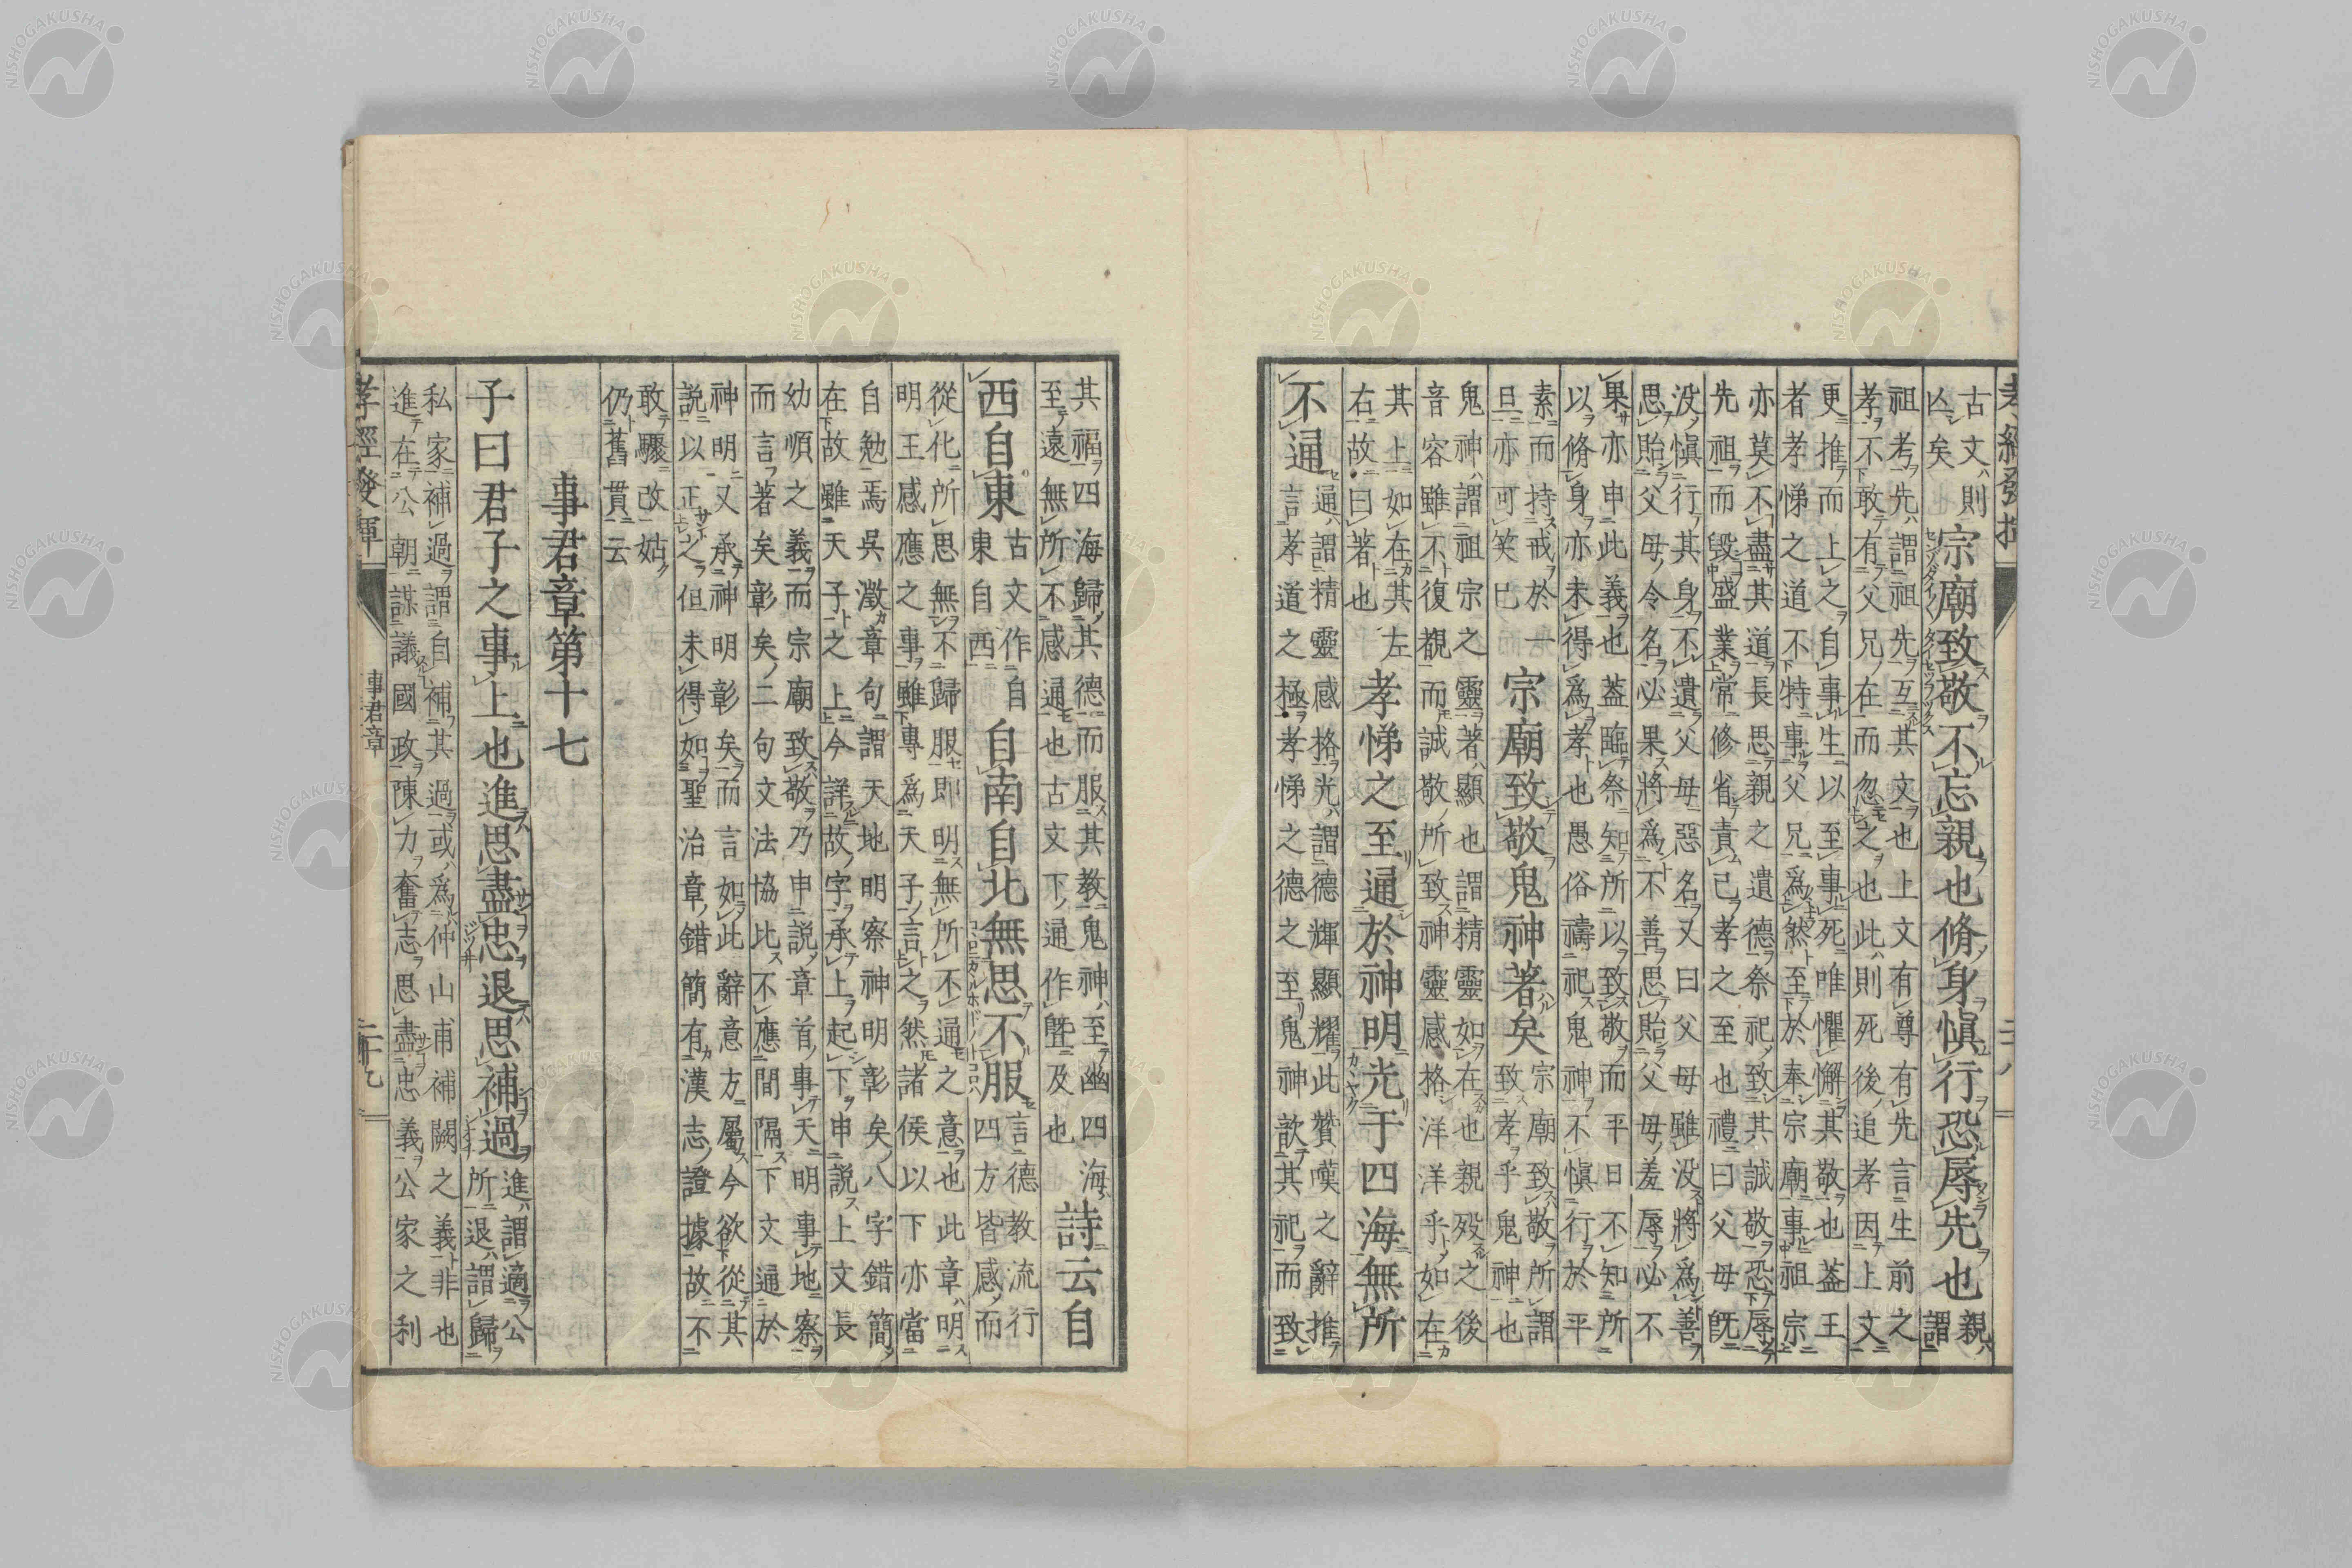 孝經發揮
古文則
凶矣
宗廟致敬不忘親也脩身慎行恐辱先也
親
謂
祖考先謂祖先互其文也上文有尊有先言生前之
孝不敢有父兄在而忽之也此則死後追孝因上文
更推而上之自事生以至事死唯懼懈其敬也蓋王
者孝悌之道不特事父兄爲然至於奉宗廟事祖宗
亦莫不盡其道長思親之遺德祭祀致其誠敬恐辱
先祖而毀盛業常修省責己孝之至也禮曰父母既
没慎行其身不遺父母惡名又曰父母雖没將爲善
思貽父母令名必果將爲不善思貽父母羞辱必不
果亦申此義也蓋臨祭知所以致敬而平日不知所
以脩身亦未得爲孝也愚俗禱祀鬼神不慎行於平
素而持戒於一
旦亦可笑已
宗廟致敬鬼神著矣
宗廟致敬所謂
致孝乎鬼神也
鬼神謂祖宗之靈著顯也謂精靈如在也親歿之後
音容雖不復覩而誠敬所致神靈感格洋洋乎如在
其上如在其左
右故曰著也
孝悌之至通於神明光于四海無所
不通
通謂精靈感格光謂德輝顯耀此贊嘆之辭推
言孝道之極孝悌之德之至鬼神歆其祀而致
其福四海歸其德而服其教鬼神至幽四海
至遠無所不感通也古文下通作曁及也
詩云自
西自東
古文作自
東自西
自南自北無思不服
言德教流行
四方皆感而
從化所思無不歸服即明無所不通之意也此章明
明王感應之事雖專爲天子言之然諸侯以下亦當
自勉焉吳澂章句謂天地明察神明彰矣八字錯簡
在故雖天子之上今詳故字承上起下申說上文長
幼順之義而宗廟致敬乃申說章首事天明事地察
而言著矣彰矣二句文法協比不應間隔下文通於
神明又承神明彰矣而言如此辭意方屬今欲從其
說以正之但未得如聖治章錯簡有漢志證據故不
敢驟改姑
仍舊貫云
事君章第十七
子曰君子之事上也進思盡忠退思補過
進謂適公
所退謂歸
私家補過謂自補其過或爲仲山甫補闕之義非也
進在公朝謀議國政陳力奮志思盡忠義公家之利
孝經發揮
事君章
二十九